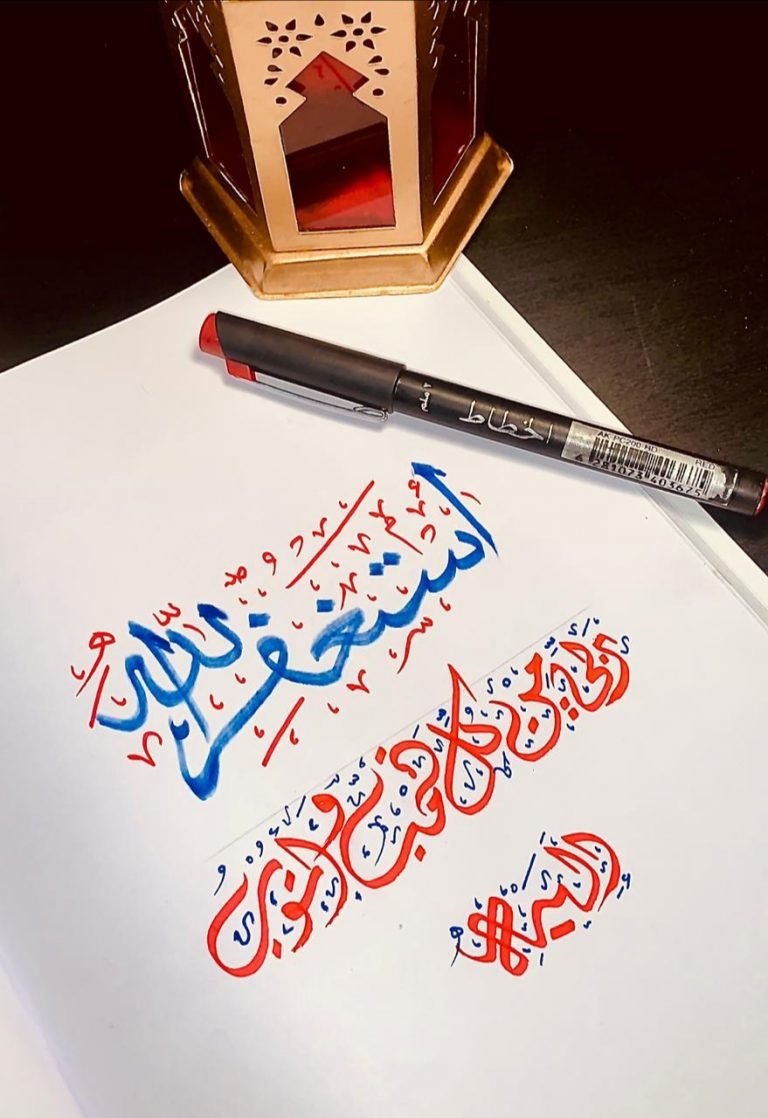 ٢ ملم
الخطاط
AK-PC200-MD RED
4 281073 403675
استغفر الله
ربي من كل ذنب وأتوب
إليه